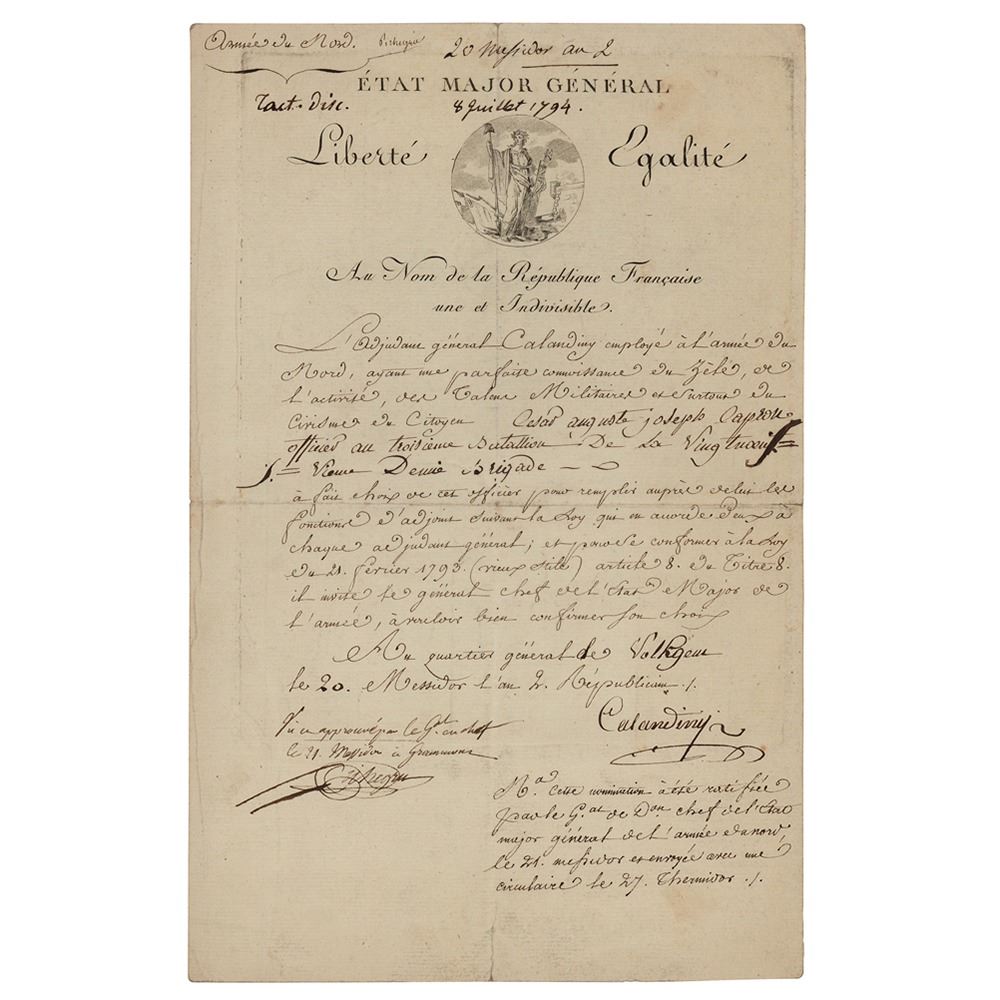 Armée du Nord. Pichegru 20 Messidor an 2
ÉTAT MAJOR GÉNÉRAL
Tact. disc. 8 Juillet 1794.
Liberté Egalité
Au Nom de la République Française
une et Indivisible.
L'Adjudant général Calandiny employé à l'armée du
Nord, ayant une parfaite connoissance du Zèle, de
l'activité, des Talens Militaires et surtout du
Civisme du Citoyen Cesar auguste joseph
officier au troisième Bataillon De La Vingtneuf=
= Vieme Demie Brigade
à fait choix de cet officier pour remplir auprès de lui les
fonctions d'adjoint suivant la Loy qui en accorde deux à
chaque adjudant général; et pour se conformer à la Loy
du 21. février 1793. (vieux stile) article 8. du Titre 8.
il invite le général chef de l'Etat Major de
l'armée, à vouloir bien confirmer son choix
Au quartier général de Volkgem
le 20. Messidor l'an 2. Républicain ./.
Calandiny
Vu et approuvé par le Gal. en chef
le 21. Messidor à Grammont
Pichegru
Na. cette nomination à été ratifiée
par le Gal de Don chef de l'Etat
major général de l'armée du nord,
le 21. messidor et envoyée avec une
circulaire le 27. Thermidor ./.